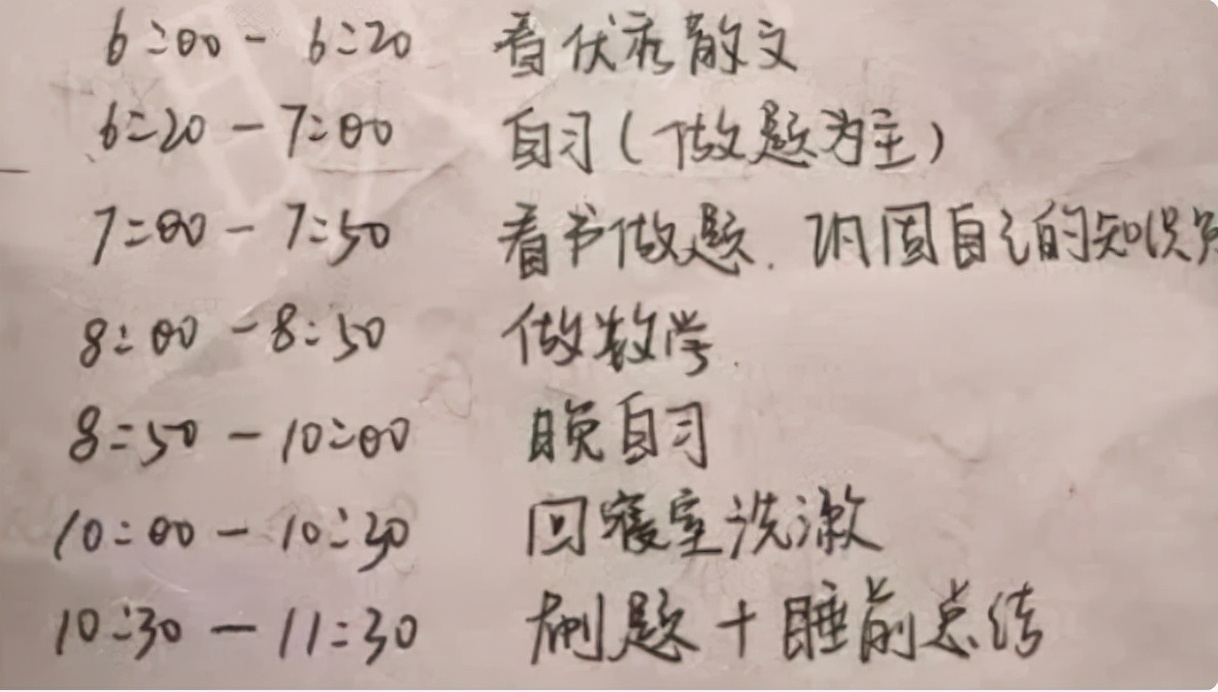 6:00 - 6:20 看优秀散文
6:20 - 7:00 自习(做题为主)
7:00 - 7:50 看书做题. 巩固自己的知识
8:00 - 8:50 做数学.
8:50 - 10:00 晚自习
10:00 - 10:30 回寝室洗漱
10:30 - 11:30 刷题+睡前总结